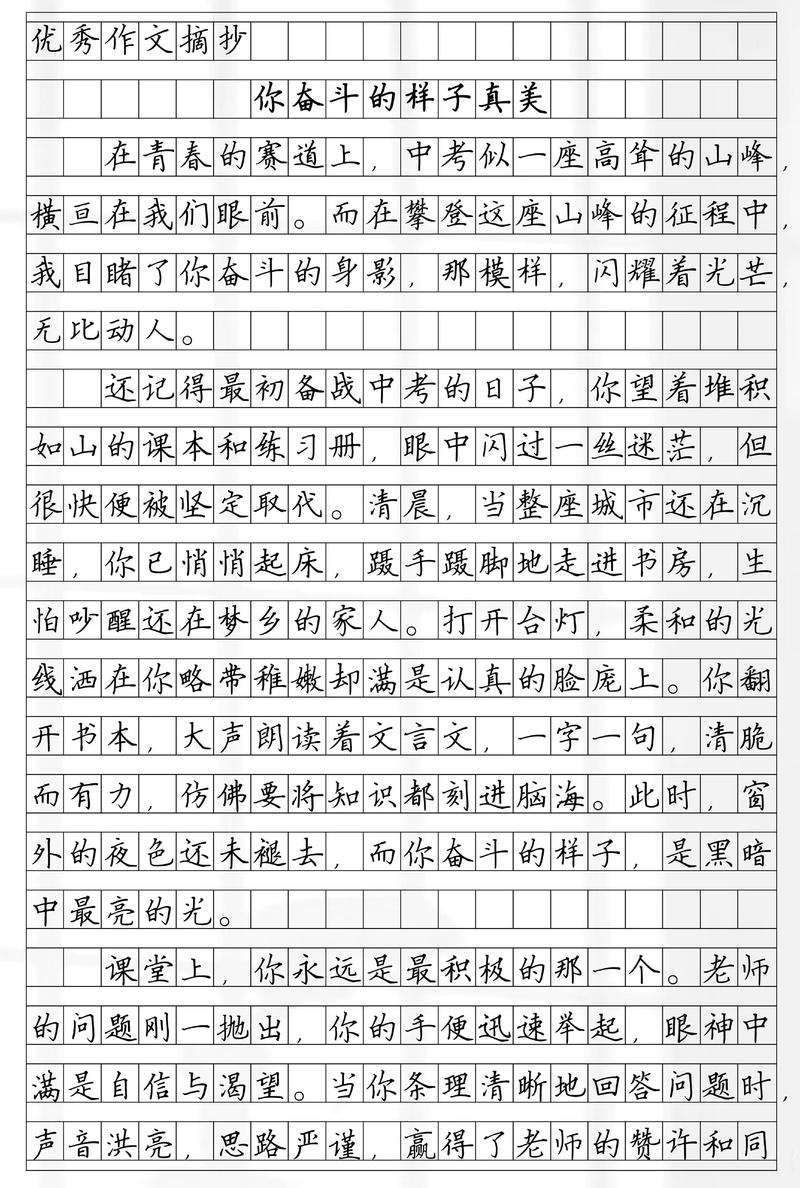 优秀作文摘抄
你奋斗的样子真美
在青春的赛道上，中考似一座高耸的山峰，
横亘在我们眼前。而在攀登这座山峰的征程中，
我目睹了你奋斗的身影，那模样，闪耀着光芒，
无比动人。
还记得最初备战中考的日子，你望着堆积
如山的课本和练习册，眼中闪过一丝迷茫，但
很快便被坚定取代。清晨，当整座城市还在沉
睡，你已悄悄起床，蹑手蹑脚地走进书房，生
怕吵醒还在梦乡的家人。打开台灯，柔和的光
线洒在你略带稚嫩却满是认真的脸庞上。你翻
开书本，大声朗读着文言文，一字一句，清脆
而有力，仿佛要将知识都刻进脑海。此时，窗
外的夜色还未褪去，而你奋斗的样子，是黑暗
中最亮的光。
课堂上，你永远是最积极的那一个。老师
的问题刚一抛出，你的手便迅速举起，眼神中
满是自信与渴望。当你条理清晰地回答问题时，
声音洪亮，思路严谨，赢得了老师的赞许和同